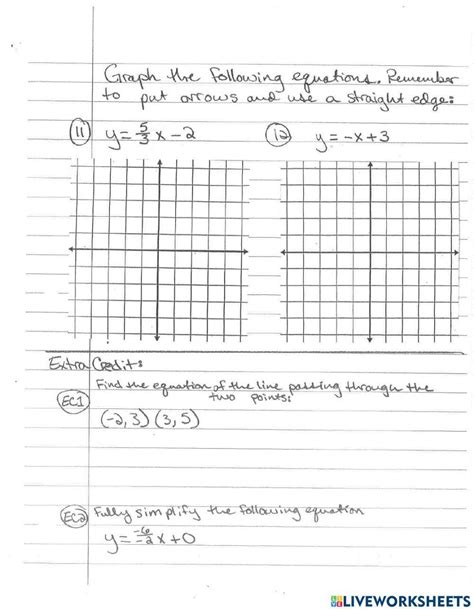 Graph the following equations. Remember
to put arrows and use a straight edge:
11 y=5/3x-2 12 y=-x+3
Extra Credit:
Find the equation of the line passing through the
two points:
EC1
(-2,3) (3,5)
EC2 Fully simplify the following equation
y=-6/-2x+0
LIVEWORKSHEETS